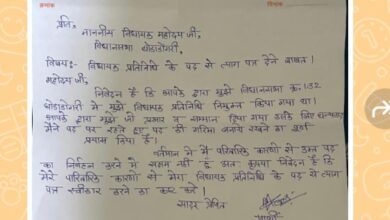 क्रमांक
दिनांक
प्रति,
माननीय विधायक महोदय जी,
विधानसभा घोडाडोंगरी,
विषय:- विधायक प्रतिनिधि के पद से त्याग पत्र देने बाबत।
महोदय जी,
निवेदन है कि आपके द्वारा मुझे विधानसभा क्र. 132
घोडाडोंगरी में मुझे विधायक प्रतिनिधि नियुक्त किया गया था।
आपके द्वारा मुझे जो प्रभार व सम्मान दिया गया उसके लिए धन्यवाद
मैंने पद पर रहते हुए पद की गरिमा बनाये रखने का पूर्ण
प्रयास किया है।
वर्तमान में मैं पारिवारिक कारणो से उक्त पद
का निर्वहन करने में सक्षम नहीं हूं अतः कृपया निवेदन है कि
मेरे पारिवारिक कारणो से मेरा विधायक प्रतिनिधि के पद से त्याग
पत्र स्वीकार करने का कष्ट करें।
सादर प्रेषित